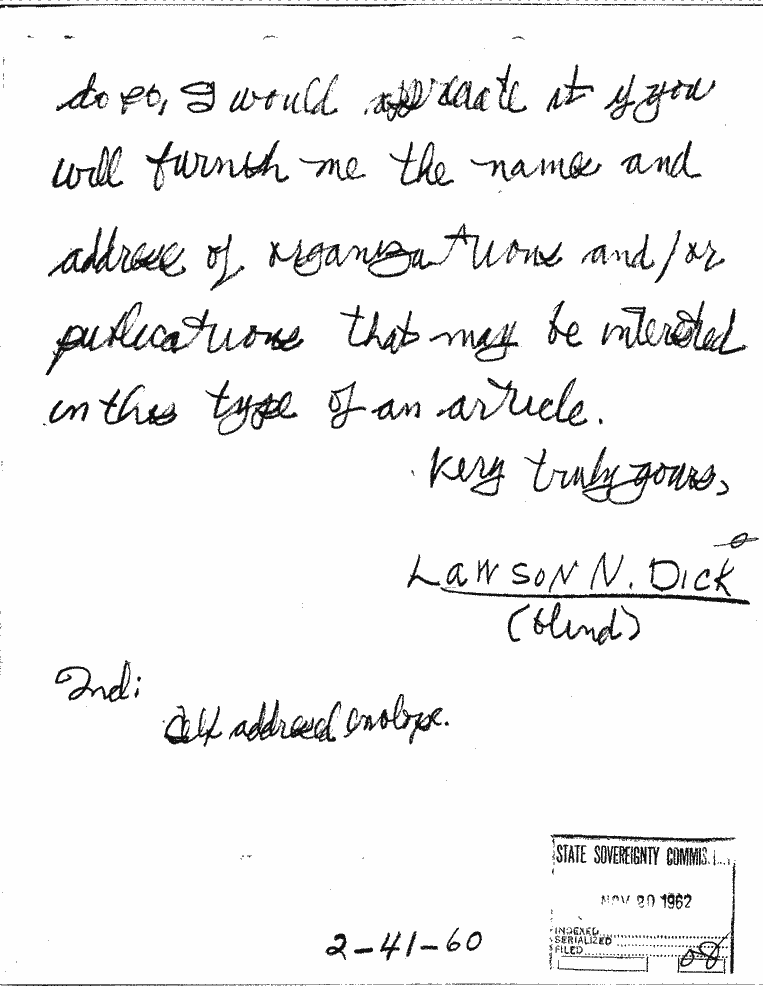 do so, I would appreciate it if you
will furnish me the names and
address of organizations and/or
publications that may be interested
in this type of an article.
Very truly yours,
LAWSON N. DICK
(blind)
Incl:
Self addressed envelope.
STATE SOVEREIGNTY COMMIS
NOV 20 1962
INDEXED
SERIALIZED
FILED
2-41-60